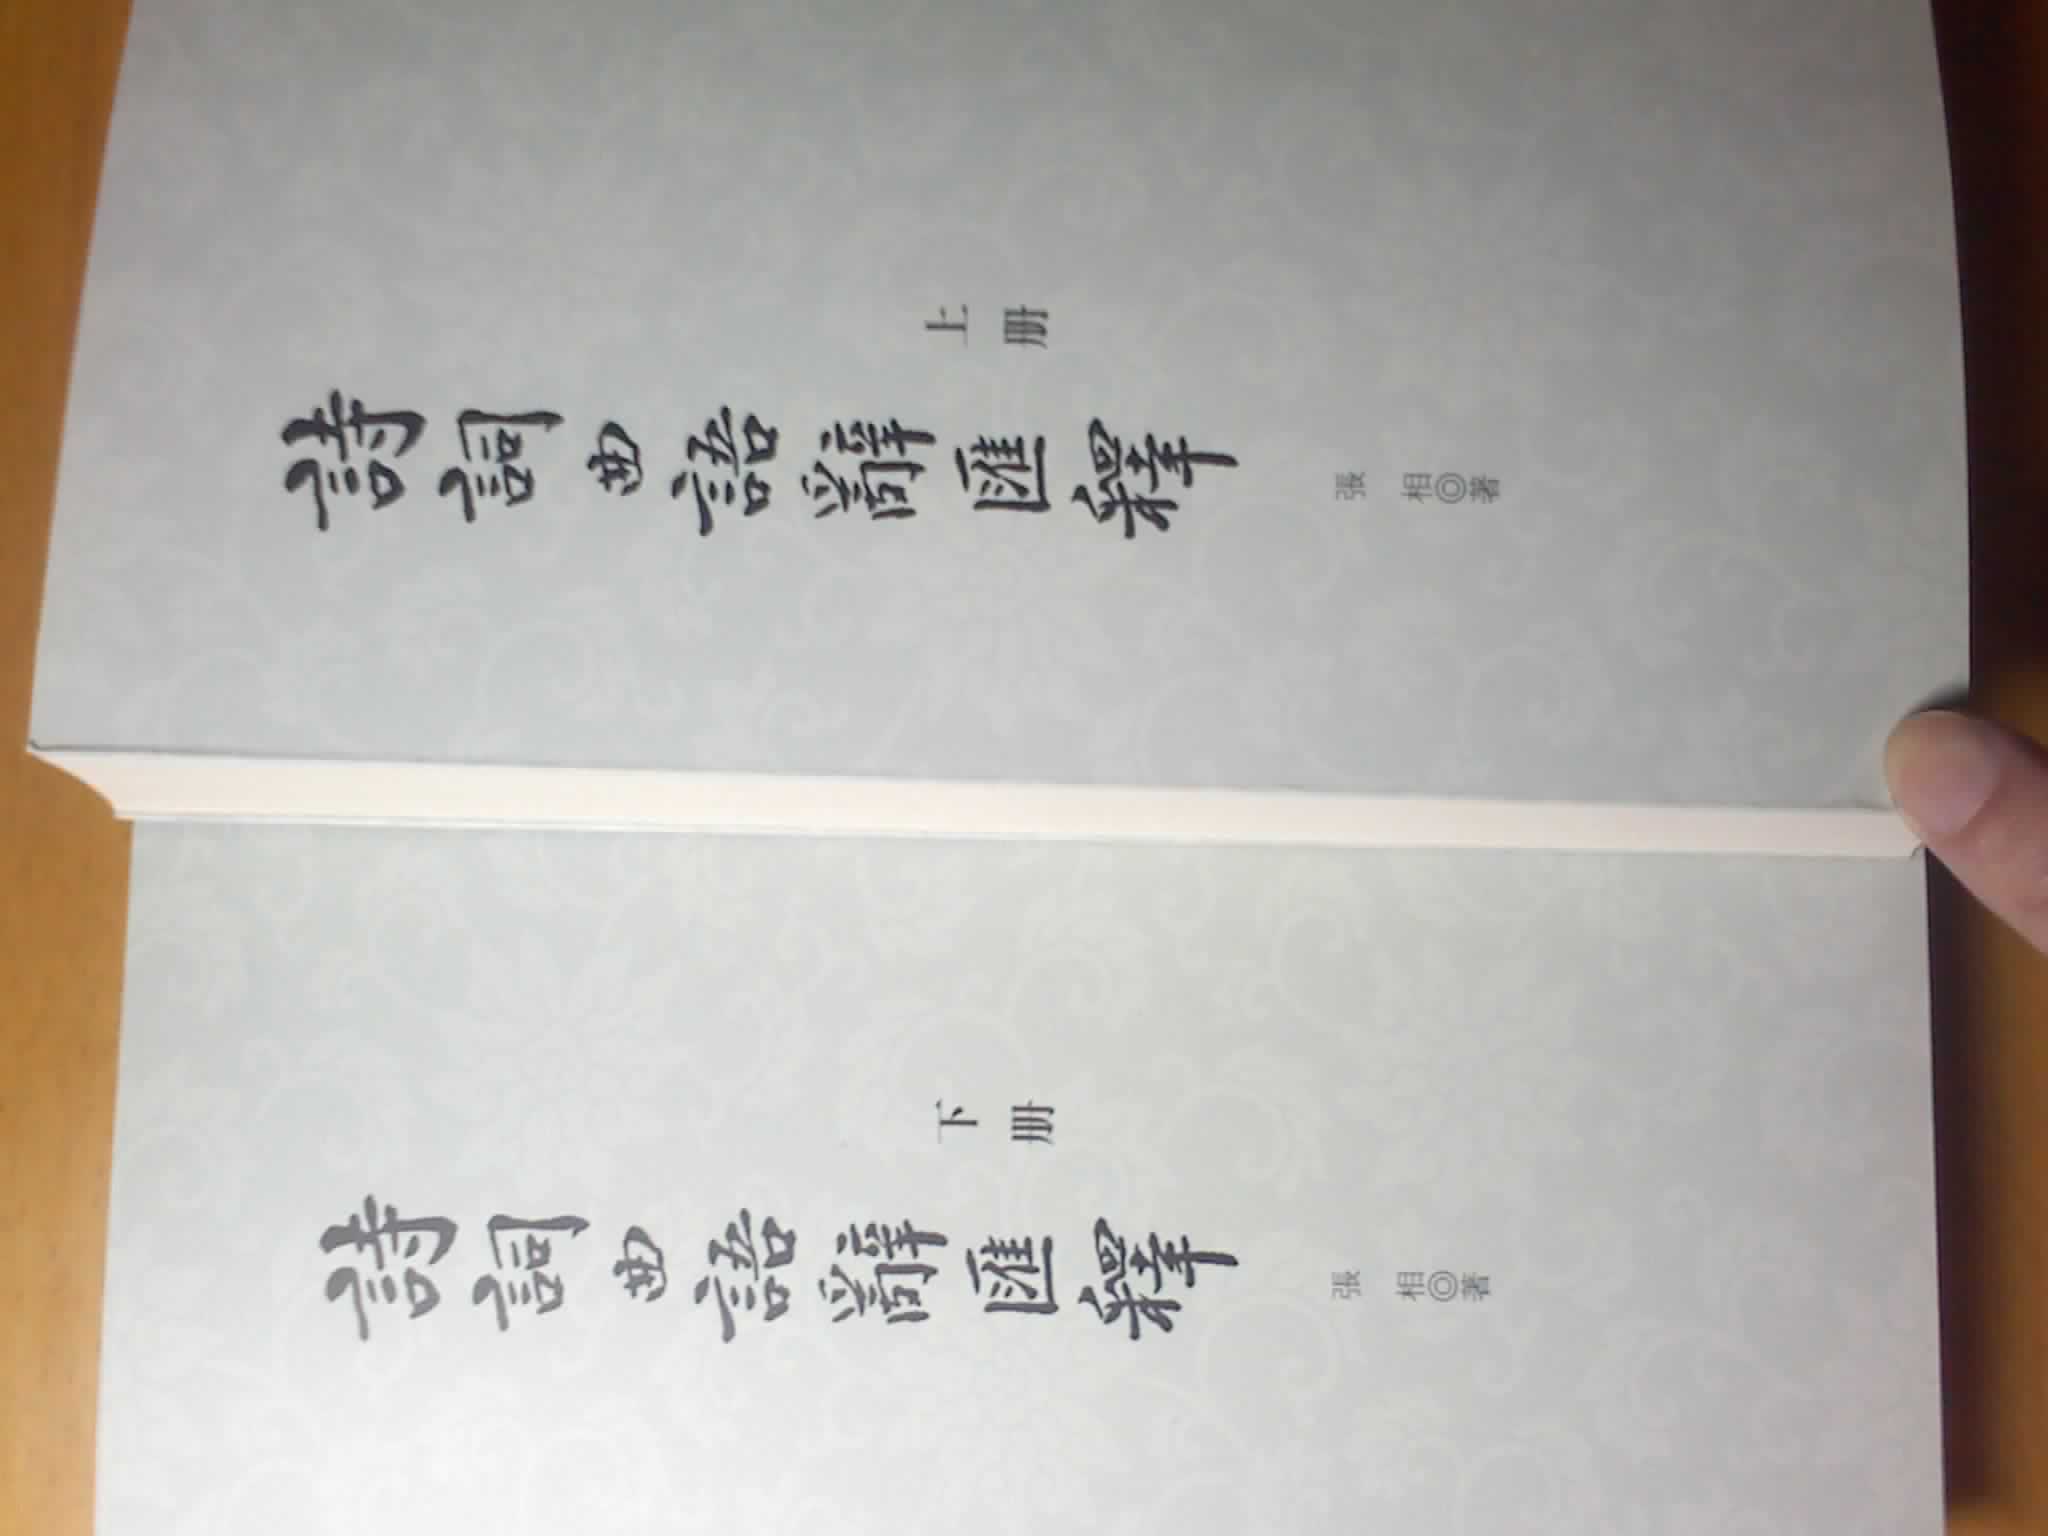 詩詞曲語辭匯釋
上册
張 相◎著
詩詞曲語辭匯釋
下册
張 相◎著